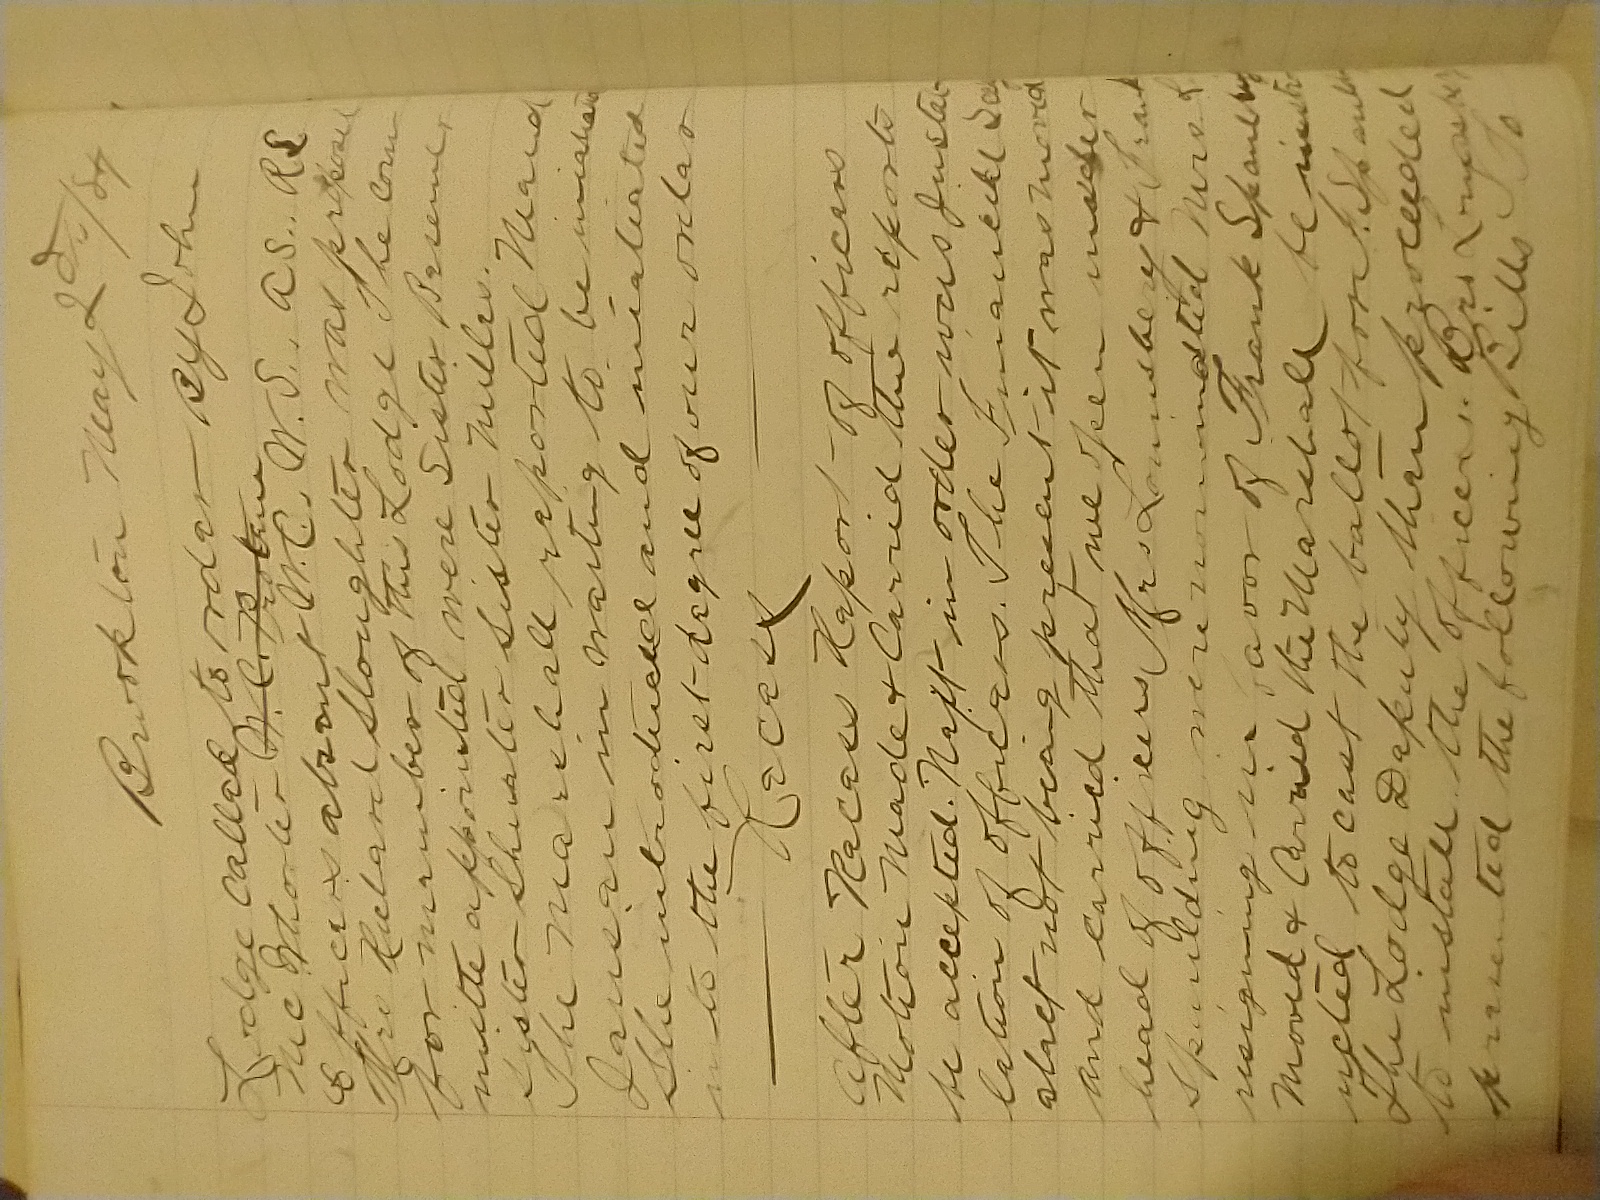 Brookton May 2d /84
Lodge called to order By John
Mc Whorter W. C. Protem
Officers absant W.C., W.S., A.S., R.S.
Mrs Richard Sloughter was proposed
for mamber of this Lodge The com
mitte appointed were Sister Basemer
Sister Shurter Sister Mills.
The Marshall raported Maud
Jansan in waiting to be
She introduced and iniatiated
in to the first dagree of our ordar
Racass
After Racass Raport of officars
Motion Made & Carried the reports
be accepted. Naxt in order was Instal
lation of officars. The Financial Secy
alact not being present it was moved
and carried that we open under
head of officers Mrs Lounsbery & Frank
Spaulding were nominated Mrs L
resigning in favor of Frank Spaulding
Moved & Carried the Marshall be instr
ucted to cast the ballot for F. Spaulding
The Lodge Daputy then proceeded
to install the officers. Bro Lounsbery
prasented the following Bills To